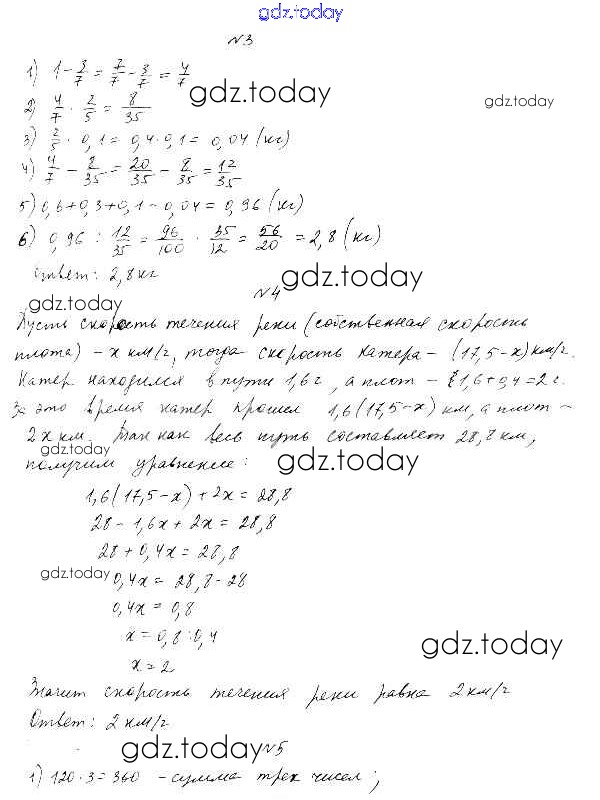 gdz.today
№3
1) 1 - 3/7 = 7/7 - 3/7 = 4/7
gdz.today
gdz.today
2) 4/7 · 2/5 = 8/35
3) 2/5 · 0,1 = 0,4 · 0,1 = 0,04 (кг)
4) 4/7 - 8/35 = 20/35 - 8/35 = 12/35
5) 0,6 + 0,3 + 0,1 - 0,04 = 0,96 (кг)
6) 0,96 : 12/35 = 96/100 · 35/12 = 56/20 = 2,8 (кг)
Ответ: 2,8 кг
№4
gdz.today
gdz.today
Пусть скорость течения реки (собственная скорость
плота) - х км/г, тогда скорость катера - (17,5 - х) км/г.
Катер находился в пути 1,6 г, а плот - 1,6 + 0,4 = 2 г.
За это время катер прошел 1,6(17,5 - х) км, а плот -
2х км. Так как весь путь составляет 28,8 км,
gdz.today
получим уравнение:
gdz.today
1,6(17,5 - х) + 2х = 28,8
28 - 1,6х + 2х = 28,8
28 + 0,4х = 28,8
gdz.today
0,4х = 28,8 - 28
0,4х = 0,8
х = 0,8 : 0,4
gdz.today
х = 2
Значит скорость течения реки равна 2 км/г
Ответ: 2 км/г
gdz.today
№5
1) 120 · 3 = 360 - сумма трех чисел;